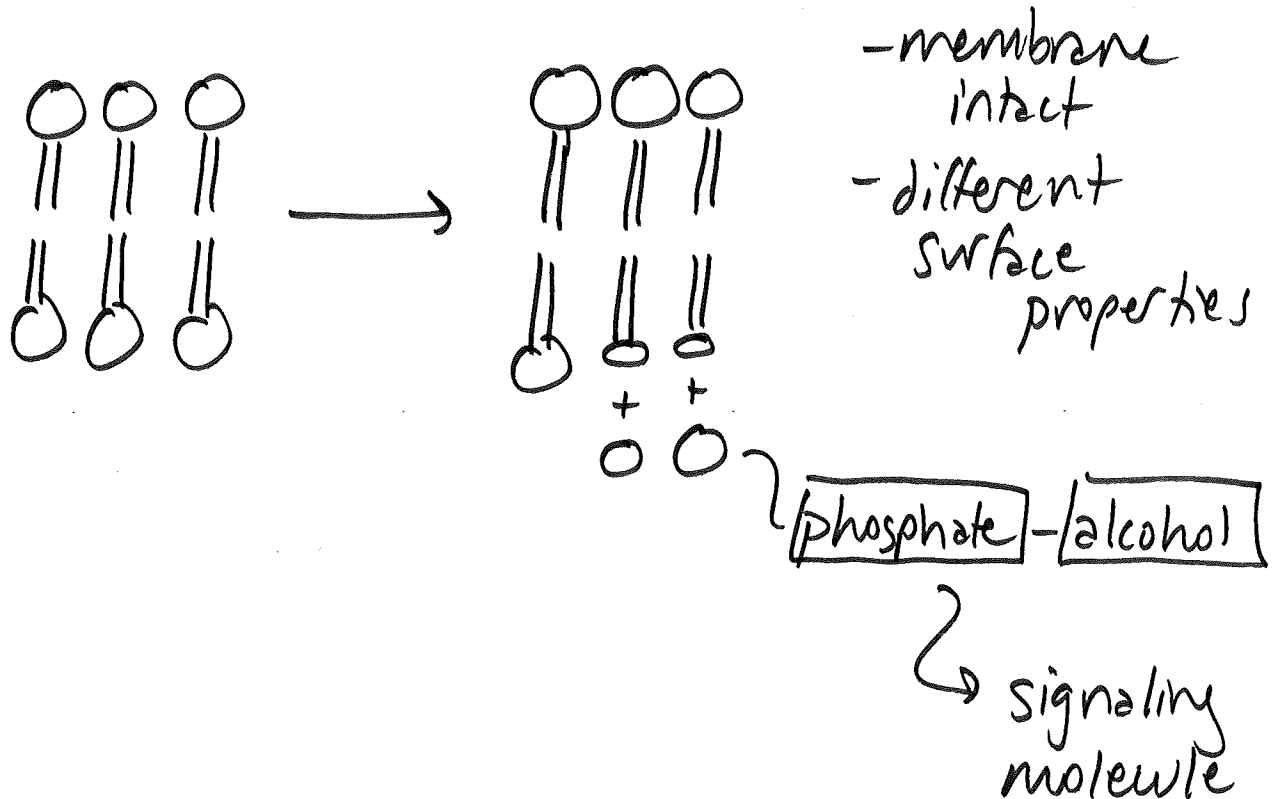 -membrane
intact
-different
surface
properties
+ +
phosphate - alcohol
signaling
molecule